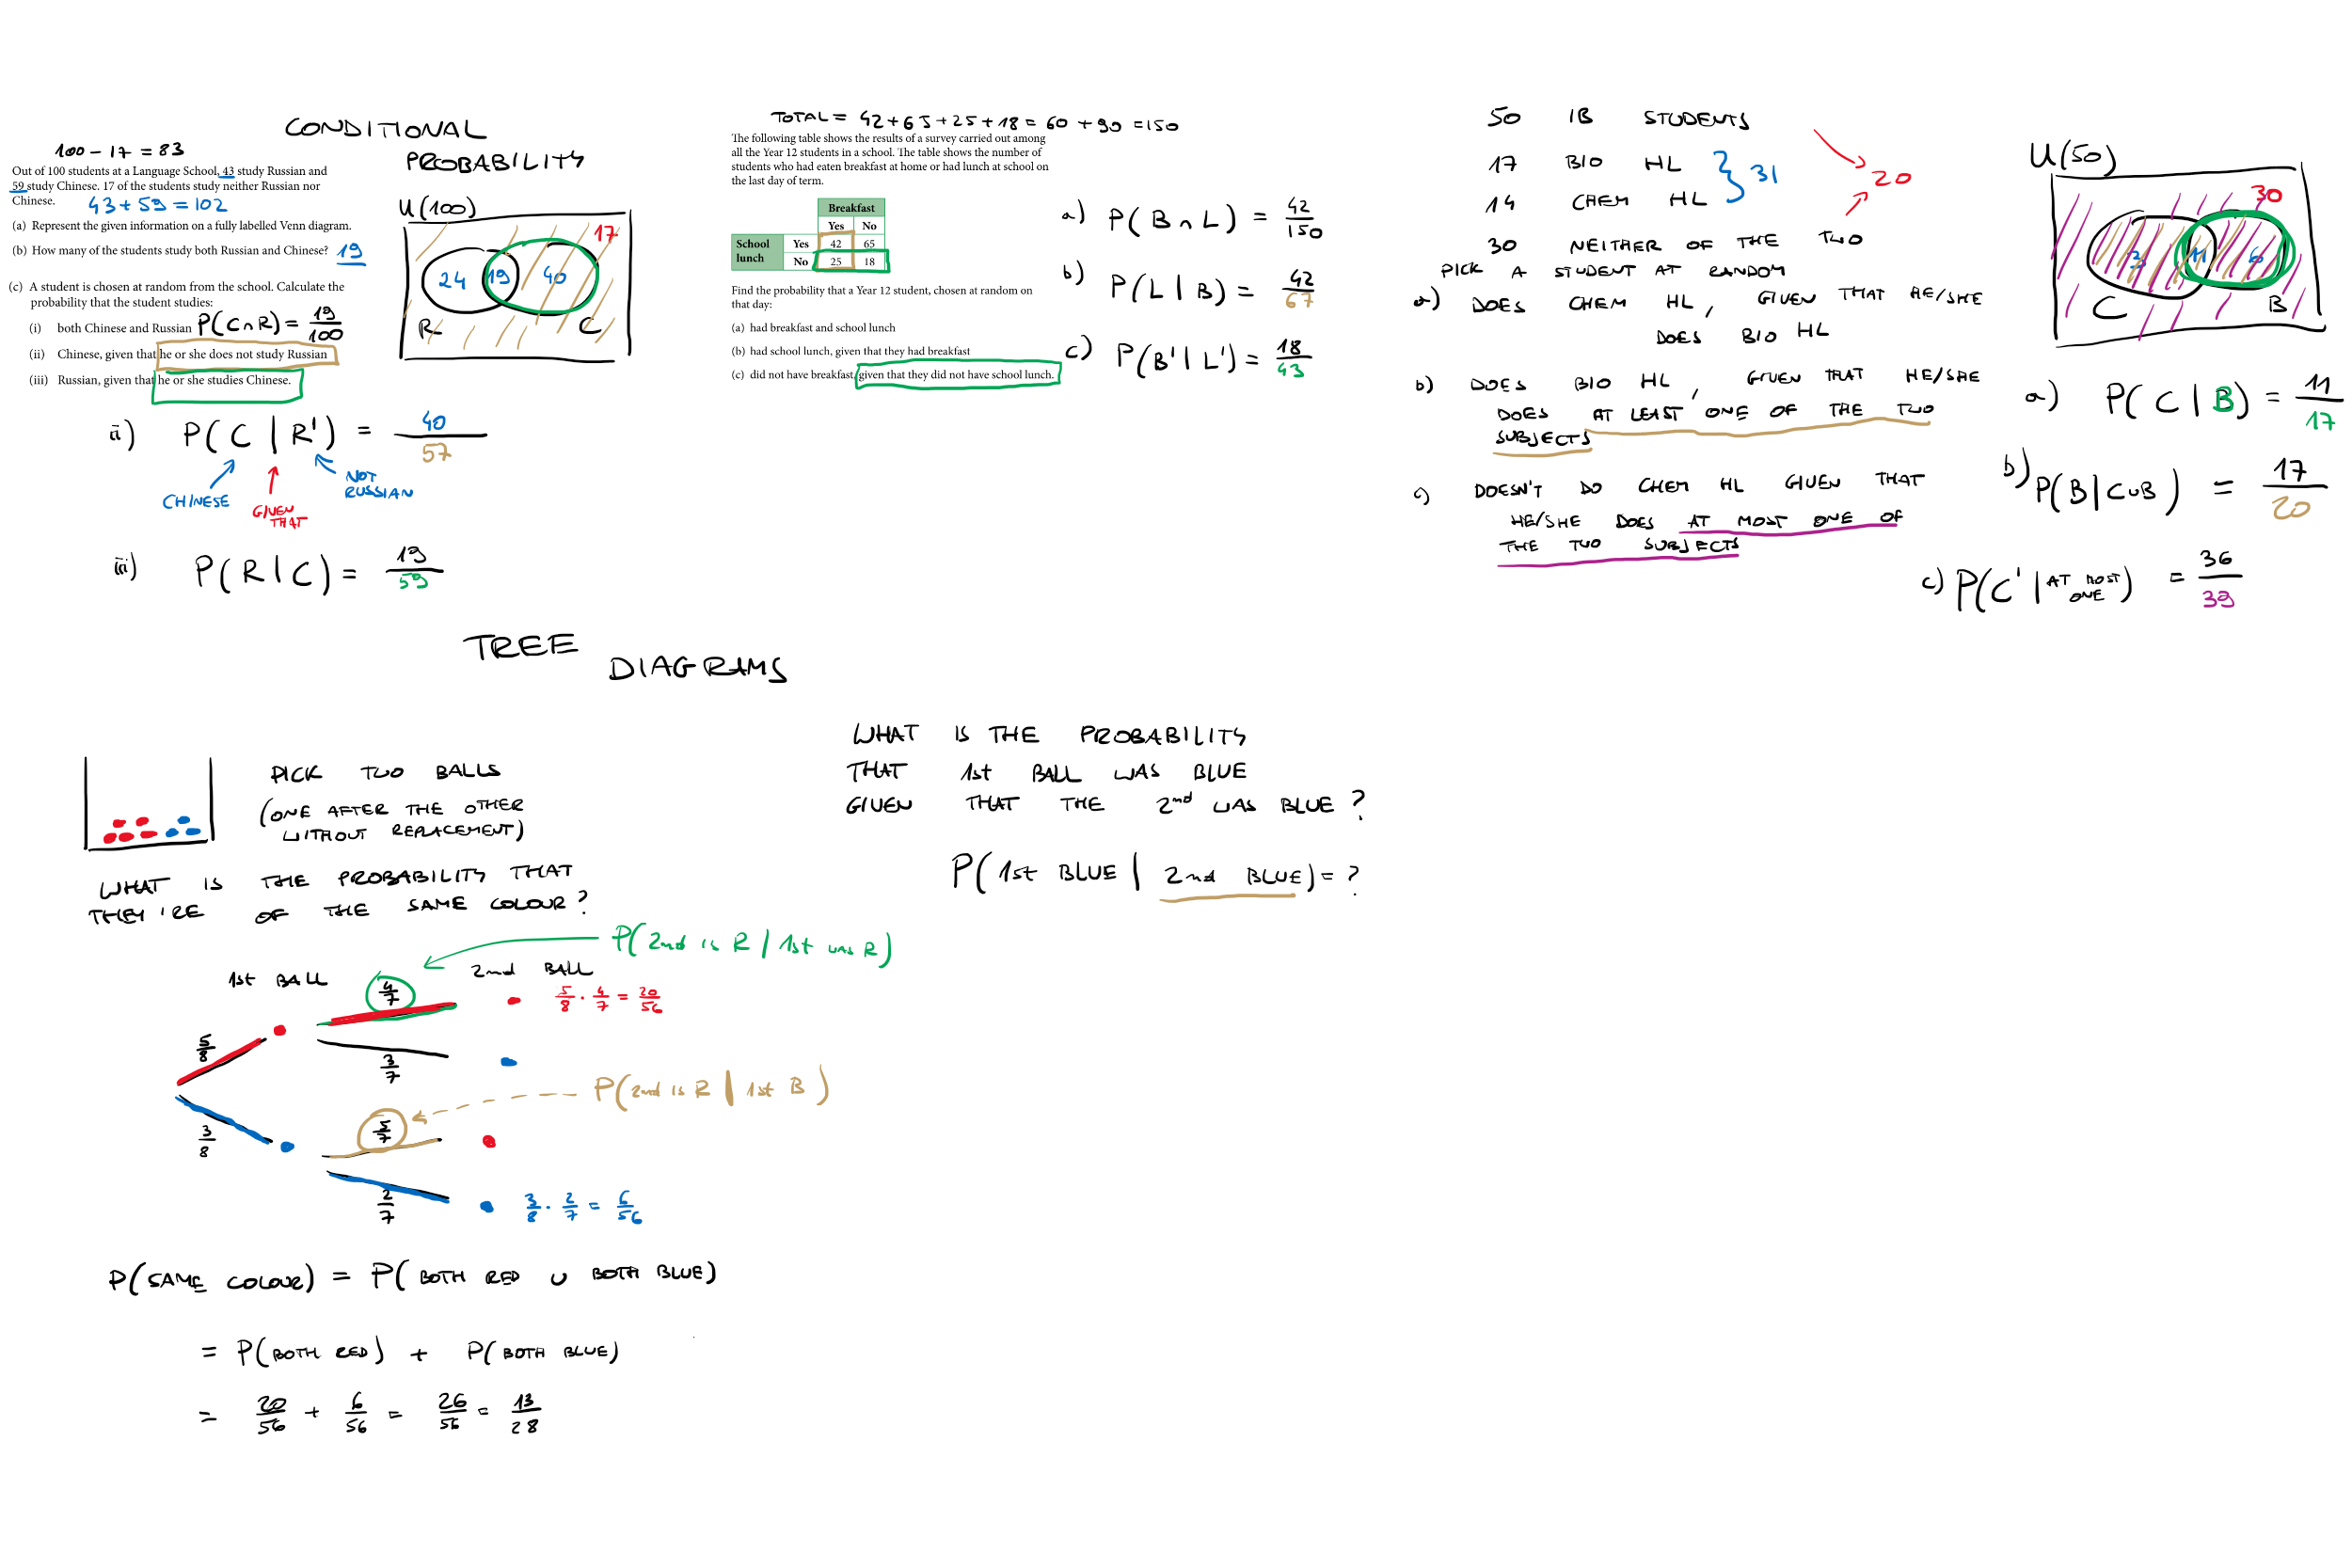 CONDITIONAL
PROBABILITY
100 - 17 = 83
Out of 100 students at a Language School, 43 study Russian and
59 study Chinese. 17 of the students study neither Russian nor
Chinese.
43 + 59 = 102
(a) Represent the given information on a fully labelled Venn diagram.
(b) How many of the students study both Russian and Chinese? 19
(c) A student is chosen at random from the school. Calculate the
probability that the student studies:
(i) both Chinese and Russian P(C ∩ R) = 19/100
(ii) Chinese, given that he or she does not study Russian
(iii) Russian, given that he or she studies Chinese.
U(100)
17
24 19 40
R C
ii) P(C | R') = 40/57
CHINESE
GIVEN THAT
NOT RUSSIAN
iii) P(R | C) = 19/59
TOTAL = 42 + 65 + 25 + 18 = 60 + 90 = 150
The following table shows the results of a survey carried out among
all the Year 12 students in a school. The table shows the number of
students who had eaten breakfast at home or had lunch at school on
the last day of term.
Breakfast
Yes No
School lunch Yes 42 65
No 25 18
Find the probability that a Year 12 student, chosen at random on
that day:
(a) had breakfast and school lunch
(b) had school lunch, given that they had breakfast
(c) did not have breakfast, given that they did not have school lunch.
a) P(B ∩ L) = 42/150
b) P(L | B) = 42/67
c) P(B' | L') = 18/43
50 IB STUDENTS
17 BIO HL
14 CHEM HL
31
20
30 NEITHER OF THE TWO
PICK A STUDENT AT RANDOM
a) DOES CHEM HL, GIVEN THAT HE/SHE
DOES BIO HL
b) DOES BIO HL, GIVEN THAT HE/SHE
DOES AT LEAST ONE OF THE TWO
SUBJECTS
c) DOESN'T DO CHEM HL GIVEN THAT
HE/SHE DOES AT MOST ONE OF
THE TWO SUBJECTS
U(50)
30
3 11 6
C B
a) P(C | B) = 11/17
b) P(B | C∪B) = 17/20
c) P(C' | AT MOST ONE) = 36/39
TREE
DIAGRAMS
PICK TWO BALLS
(ONE AFTER THE OTHER
WITHOUT REPLACEMENT)
WHAT IS THE PROBABILITY THAT
THEY'RE OF THE SAME COLOUR?
P(2nd is R | 1st was R)
1st BALL 2nd BALL
5/8
4/7
5/8 · 4/7 = 20/56
3/7
P(2nd is R | 1st B)
3/8
5/7
2/7
3/8 · 2/7 = 6/56
P(SAME COLOUR) = P(BOTH RED ∪ BOTH BLUE)
= P(BOTH RED) + P(BOTH BLUE)
= 20/56 + 6/56 = 26/56 = 13/28
WHAT IS THE PROBABILITY
THAT 1st BALL WAS BLUE
GIVEN THAT THE 2nd WAS BLUE?
P(1st BLUE | 2nd BLUE) = ?